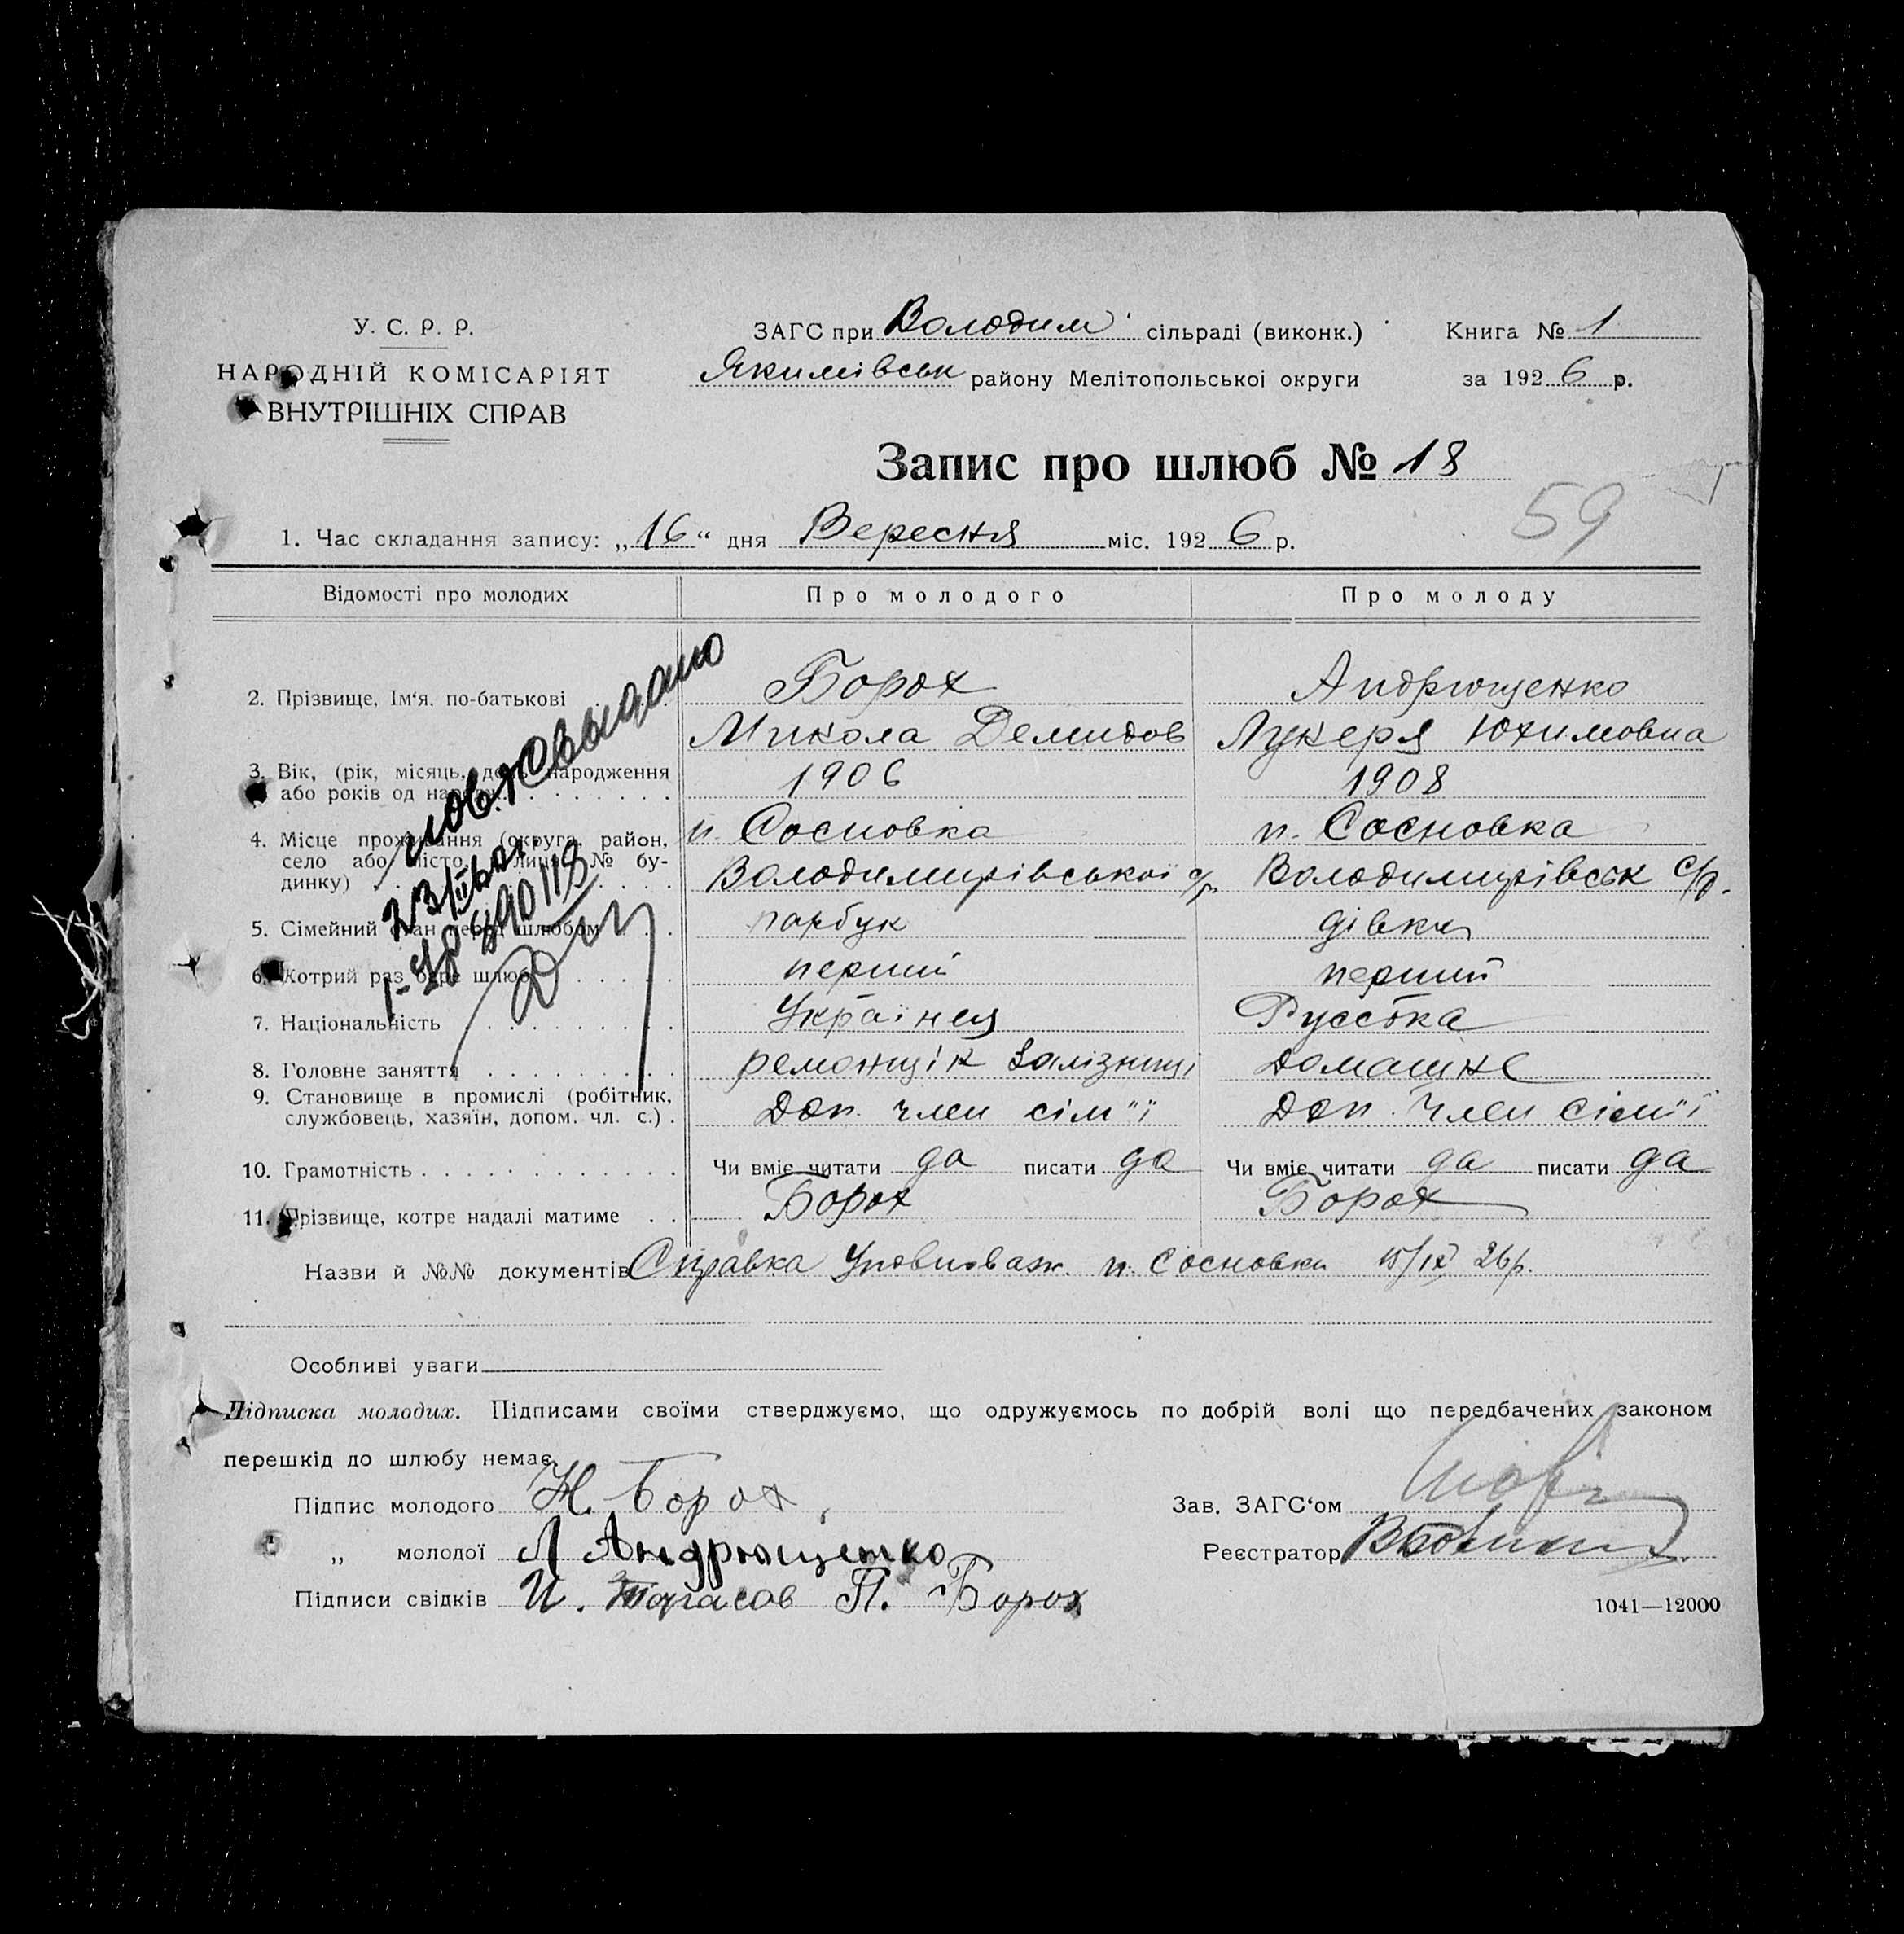 У. С. Р. Р.
НАРОДНІЙ КОМІСАРІЯТ
ВНУТРІШНІХ СПРАВ
ЗАГС при Володим. сільраді (виконк.)
Якимівськ району Мелітопольськоі округи
Книга № 1
за 1926 р.
Запис про шлюб № 18
59
1. Час складання запису: „16“ дня Вересня міс. 1926 р.
Відомості про молодих Про молодого Про молоду
2. Прізвище, Ім‘я. по-батькові Борох Андрющенко
Микола Демидов Лукеря Юхимовна
3. Вік, (рік, місяць, день народження
або років од народж. 1906 1908
4. Місце проживання (округа, район, п. Сосновка п. Сосновка
село або місто, вулиця, № бу-
динку) Володимирівської с/р. Володимирівськ с/р.
5. Сімейний стан перед шлюбом парубок дівка
6. Котрий раз бере шлюб перший перший
7. Національність Українец Русська
8. Головне заняття ремонщік Залізниці Домашнє
9. Становище в промислі (робітник,
службовець, хазяїн, допом. чл. с.) Доп. член сім"ї Доп. Член Сім"ї
10. Грамотність Чи вміє читати да писати да Чи вміє читати да писати да
11. Прізвище, котре надалі матиме Борох Борох
Назви й №№ документів Справка Уповноваж. п. Сосновки 15/IX 26р.
Особливі уваги
Підписка молодих. Підписами своїми стверджуємо, що одружуємось по добрій волі що передбачених законом
перешкід до шлюбу немає.
Підпис молодого Н. Борох
Зав. ЗАГС‘ом
„ молодої Л Андрющенко
Реєстратор
Підписи свідків И. Тарасов П. Борох
1041—12000